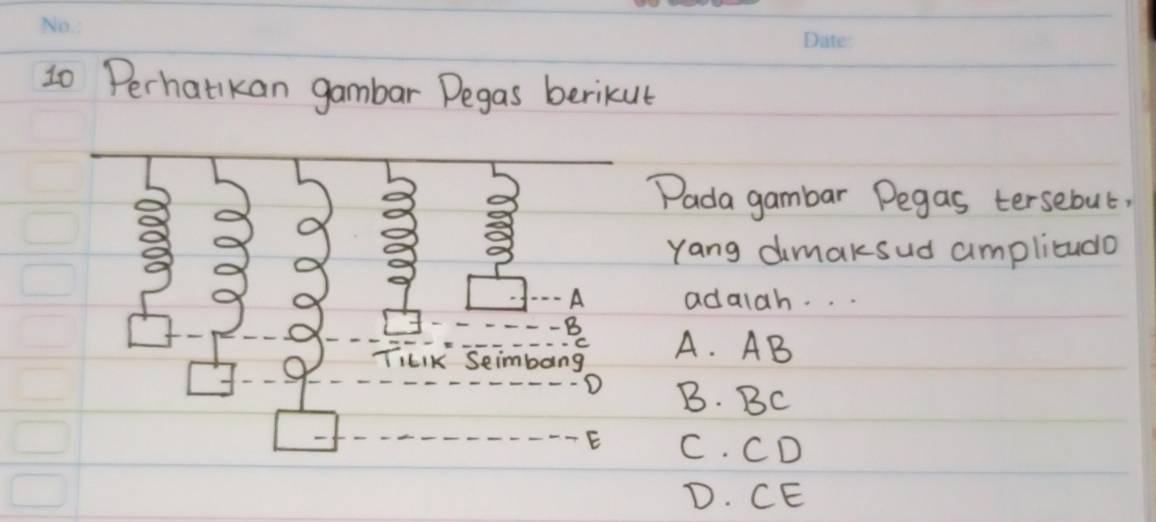 No.:
Date:
10 Perhatikan gambar Pegas berikut
Pada gambar Pegas tersebut,
yang dimaksud amplitudo
adalah...
A
B
C
Titik Seimbang
D
E
A. AB
B. BC
C. CD
D. CE